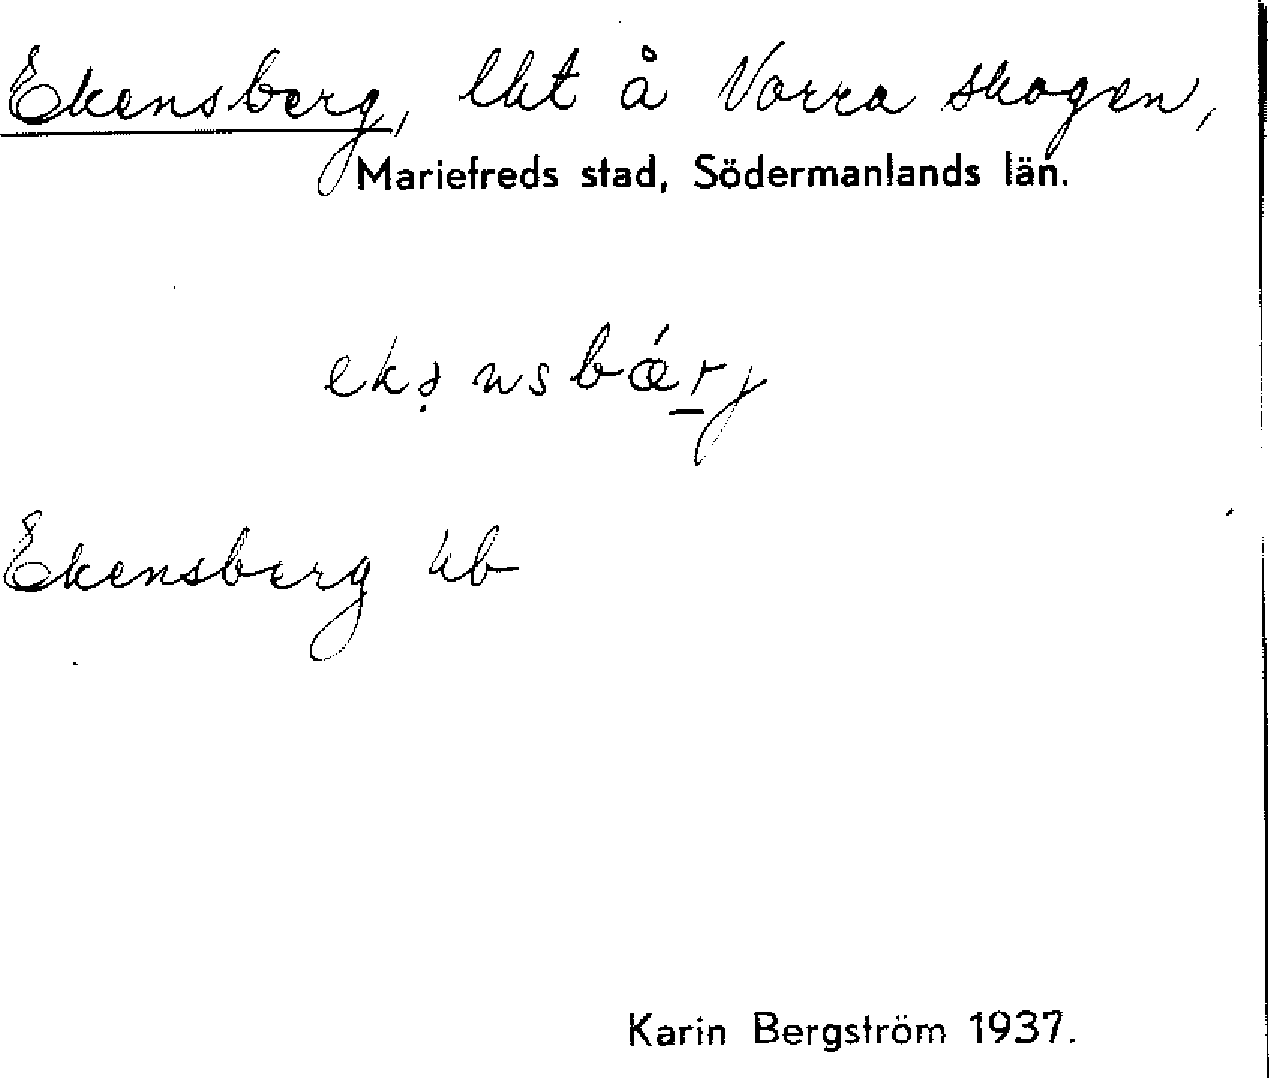 Ekensberg, lht å Norra skogen,
Mariefreds stad, Södermanlands län.
ekənsbærj
Ekensberg kb
Karin Bergström 1937.